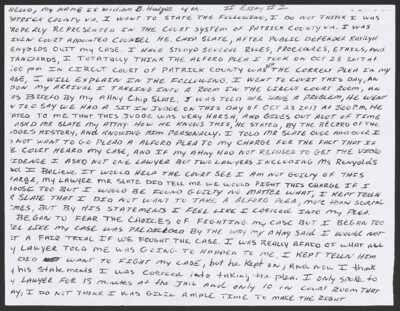 HELLO, MY NAME IS WILLIAM B. Hodges 4th. # ESSAY #2
PATRICK COUNTY VA. I WANT TO STATE THE FOLLOWING, I DO NOT THINK I WAS
ROPERLY REPRESENTED IN THE COURT SYSTEM OF PATRICK COUNTY VA. I WAS
IVEN COURT APPOINTED COUNSEL ME. CHIP SLATE, AFTER PUBLIC DEFENDER KAITLYN
EYNOLDS QUIT MY CASE. I HAVE STUDYD SEVERAL RULES, PROCEDURES, ETHICS, AND
TANDARDS, I TOTATOLLY THINK THE ALFORD PLEA I TOOK ON OCT 23 2017 AT
:00 PM IN CIRCUIT COURT OF PATRICK COUNTY WAS THE CORRECT PLEA IN MY
ASE, I WILL EXPLAIN IN THE FOLLOWING. I WENT TO COURT THIS DAY, AN
PON MY ARRIVAL I TAKEING INTO A ROOM IN THE CIRCUIT COURT ROOM, AN
AS BRIEFD BY MY ATTNY Chip SLATE, I WAS TOLD WE HAVE A PROBLEM, HE WENT
N TO SAY WE HAD A SIT IN JUDGE ON THIS DAY OF OCT 23 2017 AT 2:00 PM, HE
ATED TO ME THAT THIS JUDGE WAS VERY HARSH, AND GIVES OUT ALOT OF TIME
ASKED MR SLATE MY ATTNY. HOW HE KNOWS THIS, HE STATED, BY THE RECORD OF THE
JUDGES HISTORY, AND KNOWING HIM PERSONALLY. I TOLD MR SLATE OVER AND OVER I
NOT WANT TO PLEAD A ALFORD PLEA TO MY CHARGE FOR THE FACT THAT IF
E COURT HEARD MY CASE, AND IF MY ATTNY HAD NOT REFUSED TO GET THE VIDEO
IDENCE I ASKED NOT ONE LAWYER BUT TWO LAWYERS INCLUDING MS REYNOLDS
I BELIEVE IT WOULD HELP THE COURT SEE I AM NOT GUILTY OF THIS
ARGE, MY LAWYER MR SLATE DID TELL ME WE COULD FIGHT THIS CHARGE IF I
HOOSE TOO BUT I WOULD BE FOUND GUILTY NO MATTER WHAT, I KEPT TELLN
R SLATE THAT I DID NOT WANT TO TAKE A ALFORD PLEA, MORE THAN SEVERAL
IMES, BUT BY HIS STATEMENTS I FEEL LIKE I COERICED INTO MY PLEA
BEGAN TO FEAR THE CHOICES OF FIGHTING MY CASE BUT I BEGAN TOO
EEL LIKE MY CASE WAS PREDECIDED BY THE WAY MY ATTNY SAID I WOULD NOT
T A FAIR TRIAL IF WE FOUGHT THE CASE. I WAS REALLY AFAID OF WHAT ALL
Y LAWYER TOLD ME WAS GOING TO HAPPEN TO ME, I KEPT TELLN HIM
DID WANT TO FIGHT MY CASE, BUT HE KEPT ON, AND NOW I THINK
y HIS STATEMENTS I WAS COERICED INTO TAKING THE PLEA. I ONLY SPOKE TO
Y LAWYER FOR 15 MINUTES AT THE JAIL AND ONLY 10 IN COURT ROOM THAT
AY, I DO NOT THINK I WAS GIVEN AMPLE TIME TO MAKE THE RIGHT